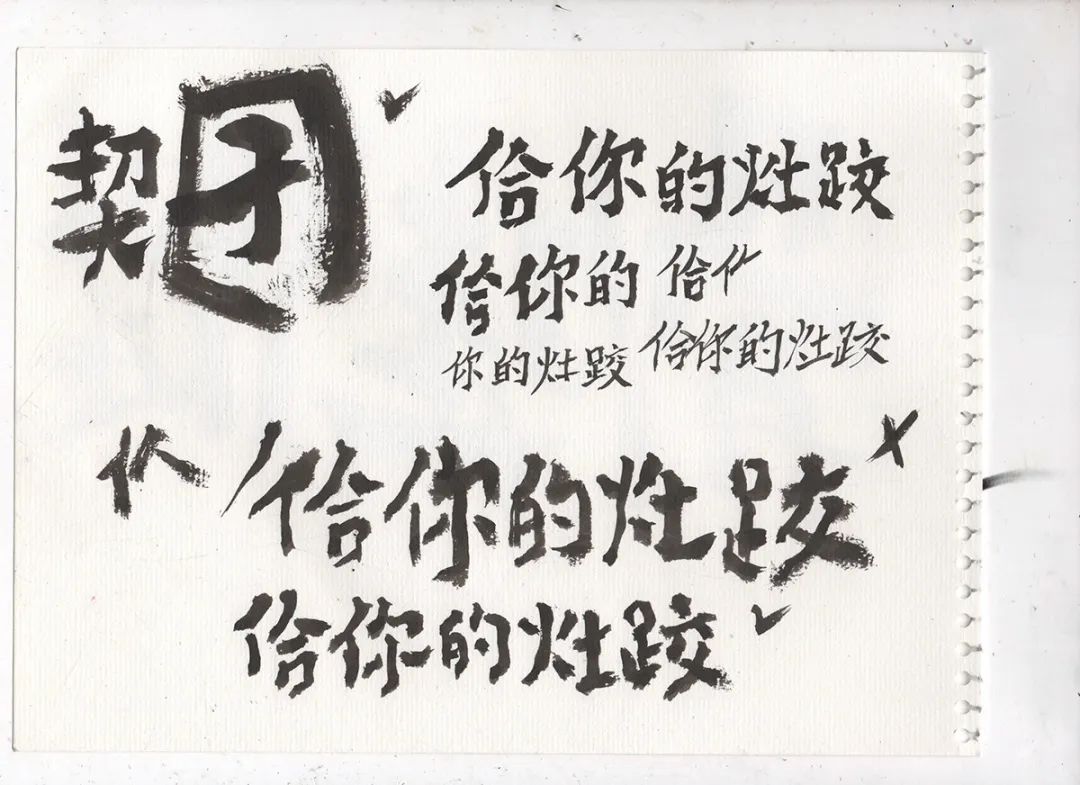 契囝
佮你的灶跤
佮你的 佮
你的灶跤 佮你的灶跤
佮你的灶跤
佮你的灶跤